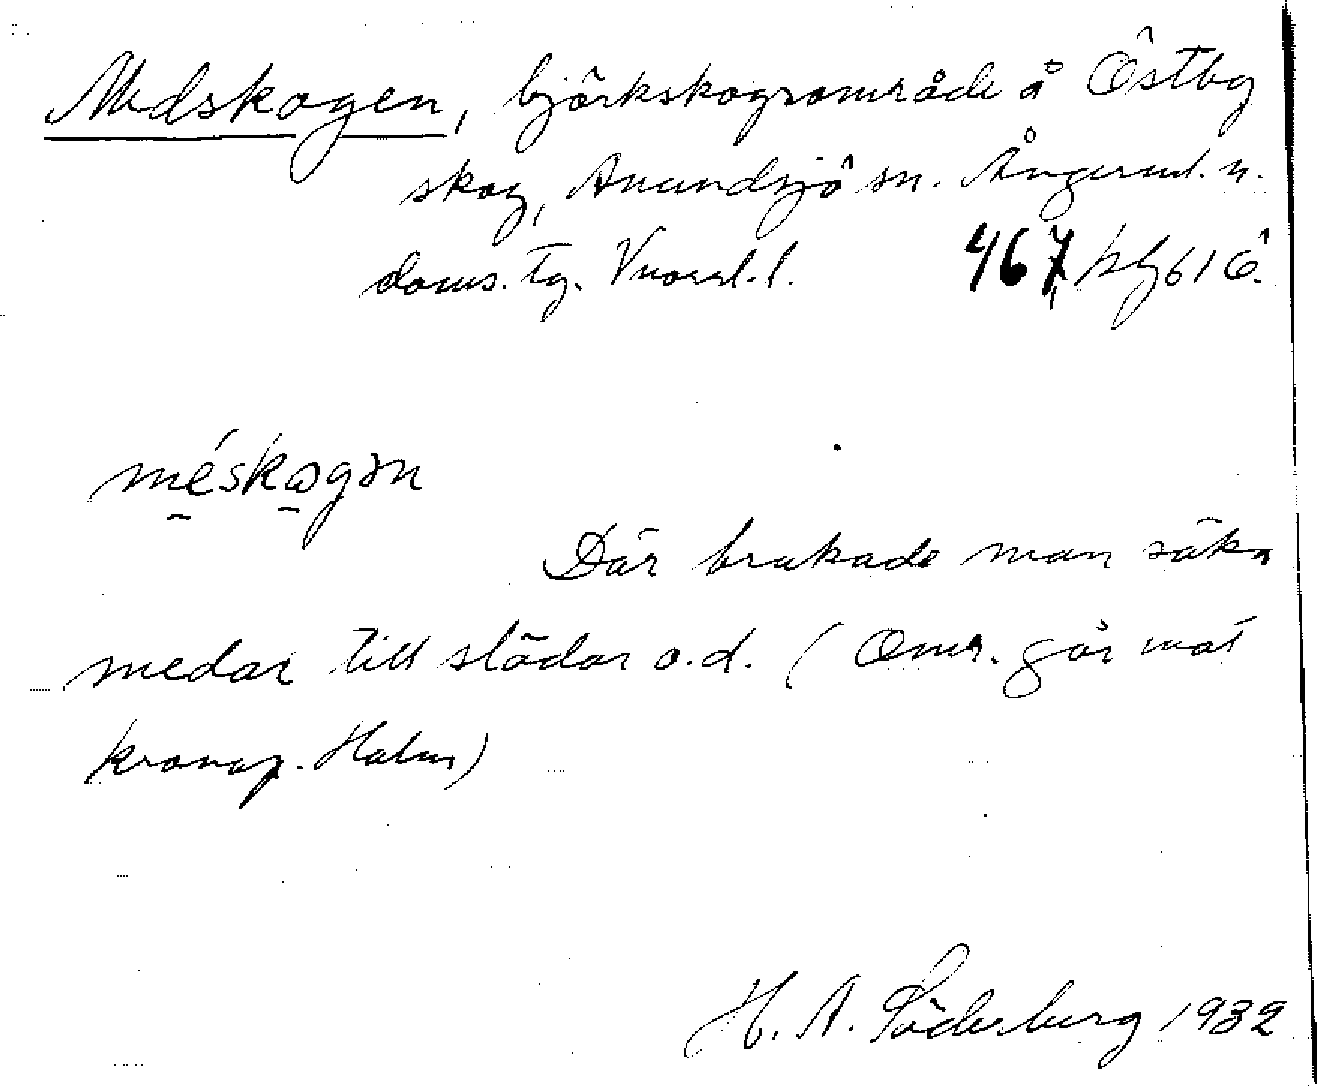 Medskogen, björkskogsområde å Östby
skog, Anundsjö sn. Ångerml. n.
doms. tg. Vnorrl. l. 467 kbl 61 Ö.
méskogən
Där brukade man söka
medar till slädar o.d. (Omr. går mot
kronop. Holm)
H. A. Söderberg 1932